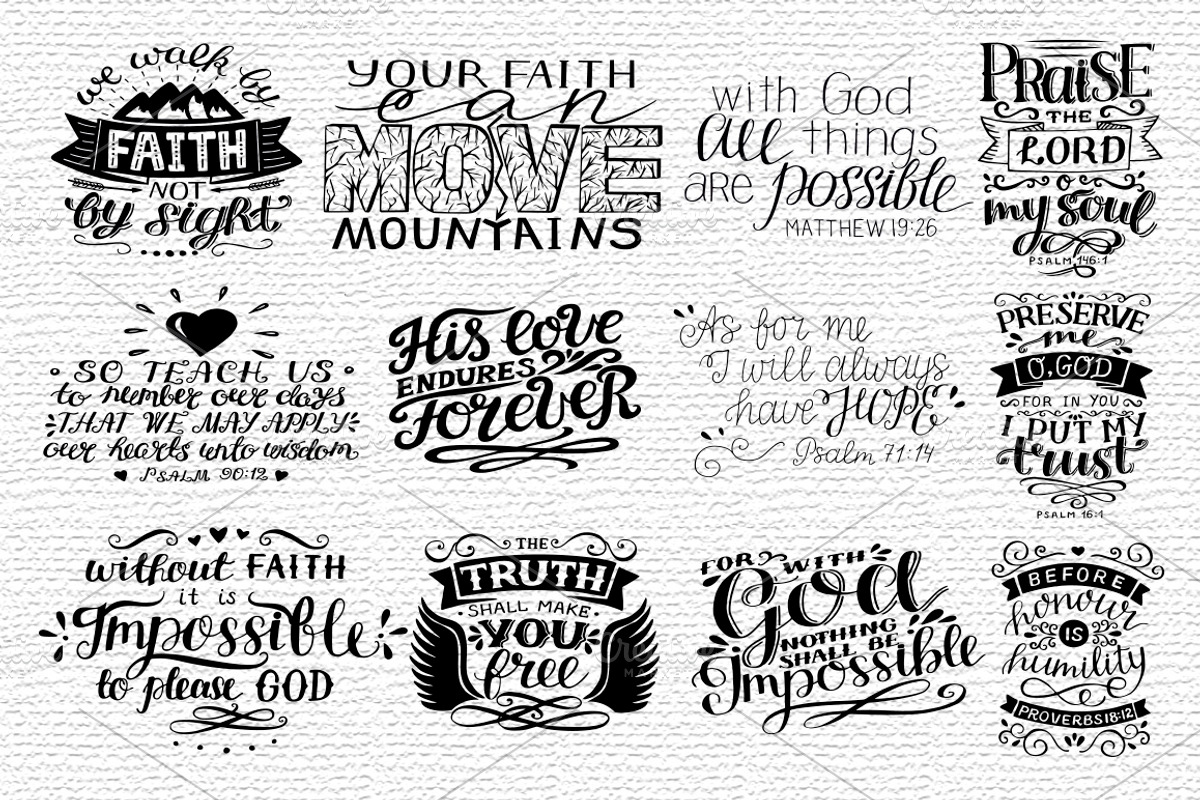 we walk by
FAITH
NOT
by sight
YOUR FAITH
can
MOVE
MOUNTAINS
with God
All things
are possible
MATTHEW 19:26
PRaiSE
THE
LORD
my soul
PSALM 146:1
SO TEACH US
to number our days
THAT WE MAY APPLY
our hearts unto wisdom
PSALM 90:12
His love
ENDURES
ForeveR
As for me
I will always
have HOPE
Psalm 71:14
PRESERVE
me
O, GOD
FOR IN YOU
I PUT MY
trust
PSALM 16:1
without FAITH
it is
Impossible
to please GOD
THE
TRUTH
SHALL MAKE
YOU
free
FOR WITH
God
NOTHING
SHALL BE
Impossible
BEFORE
honour
IS
humility
PROVERBS 18:12